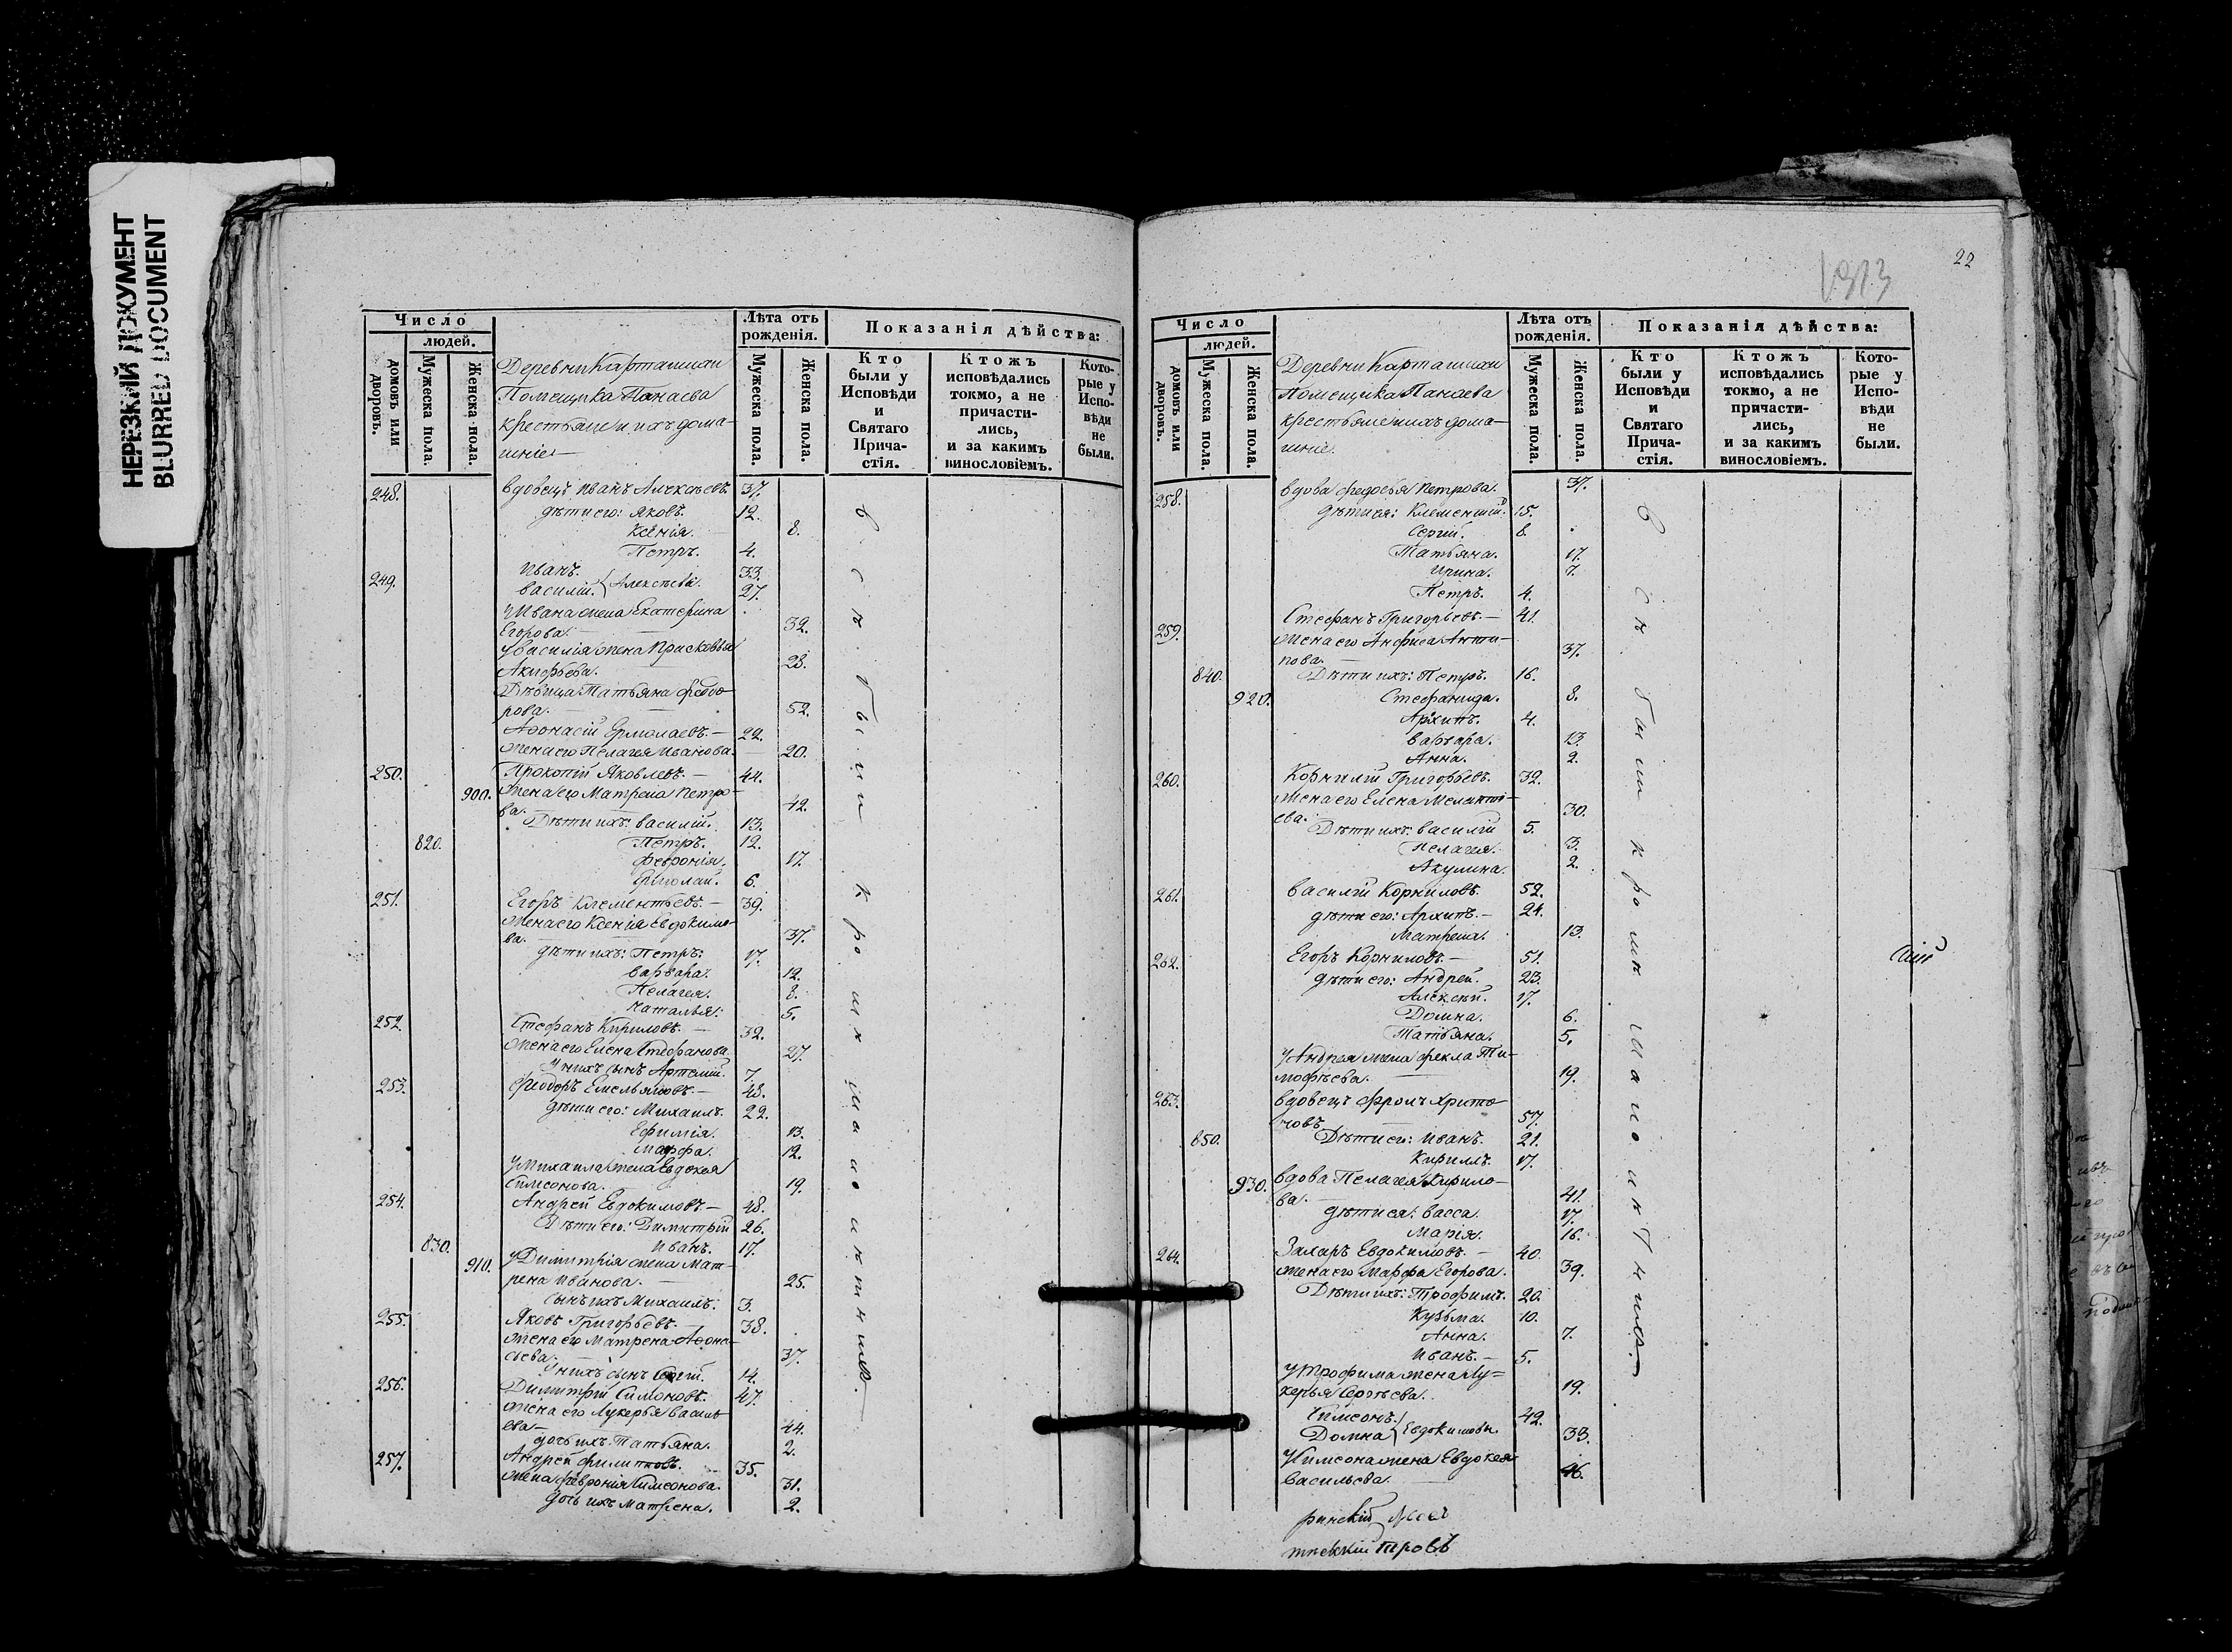 НЕРЕЗКИЙ ДОКУМЕНТ
BLURRED DOCUMENT
Число
людей.
домовъ или дворовъ.
Мужеска пола.
Женска пола.
Деревни Карташихи
Помещика Панаева
крестьяне и ихъ дома-
шніе
Лѣта отъ рожденія.
Мужеска пола.
Женска пола.
Показанія дѣйства:
Кто были у Исповѣди и Святаго Прича-стія.
Ктожъ исповѣдались токмо, а не причасти-лись, и за какимъ винословіемъ.
Кото-рые у Испо-вѣди не были.
248. Вдовецъ Иванъ Алексѣевъ. 37.
дѣти его: Яковъ. 12.
Ксенія. 8.
Петръ. 4.
249. Иванъ. 33.
Василій. Алексѣевы. 27.
У Ивана жена Екатерина
Егорова. 32.
У Василія жена Прасковья
Акифьева. 28.
Дѣвица Татьяна Федо-
рова. 52.
Афонасій Ермолаевъ. 22.
Жена его Пелагея Иванова. 20.
250. Прокопій Яковлевъ. 44.
900. Жена его Матрена Петро-
ва. 42.
Дѣти ихъ: Василій. 13.
820. Петръ. 12.
Февронія. 17.
Ермолай. 6.
251. Егоръ Клементьевъ. 39.
Жена его Ксенія Евдокимо-
ва. 37.
дѣти ихъ: Петръ. 17.
Варвара. 12.
Пелагея. 8.
Наталья. 5.
252. Стефанъ Кириловъ. 32.
Жена его Елена Стефанова. 27.
У нихъ сынъ Артемій. 7.
253. Феодоръ Емельяновъ. 48.
дѣти его: Михаилъ. 22.
Ефимія. 13.
Марфа. 12.
У Михаила жена Евдокея
Симеонова. 19.
254. Андрей Евдокимовъ. 48.
Дѣти его: Димитрій 26.
830. Иванъ. 17.
910. У Димитрія жена Мат-
рена Иванова. 25.
сынъ ихъ Михаилъ. 3.
255. Яковъ Григорьевъ. 38.
Жена его Матрена Афона-
сьева. 37.
У нихъ сынъ Сергій. 14.
256. Димитрій Симоновъ. 47.
Жена его Лукерья Василь-
ева 44.
дочь ихъ Татьяна. 2.
257. Андрей Филиповъ. 35.
жена Февронія Симеонова. 31.
дочь ихъ Матрена. 2.
всѣ были кромѣ малолѣтнихъ.
22
Число
людей.
домовъ или дворовъ.
Мужеска пола.
Женска пола.
Деревни Карташихи
Помещика Панаева
крестьяне и ихъ дома-
шніе.
Лѣта отъ рожденія.
Мужеска пола.
Женска пола.
Показанія дѣйства:
Кто были у Исповѣди и Святаго Прича-стія.
Ктожъ исповѣдались токмо, а не причасти-лись, и за какимъ винословіемъ.
Кото-рые у Испо-вѣди не были.
258. Вдова Федосья Петрова. 37.
дѣти ея: Клементій. 15.
Сергій. 8.
Татьяна. 17.
Ирина. 7.
Петръ. 4.
259. Стефанъ Григорьевъ. 41.
Жена его Анфиса Анти-
пова. 37.
840. Дѣти ихъ: Петръ. 16.
920. Стефанида. 8.
Архипъ. 4.
Варвара. 13.
Анна. 2.
260. Корнилій Григорьевъ. 32.
Жена его Елена Мелентi-
ева. 30.
Дѣти ихъ: Василій 5.
Пелагея. 3.
Акулина. 2.
261. Василій Корниловъ. 52.
дѣти его: Архипъ. 24.
Матрена. 13.
262. Егоръ Корниловъ. 51.
дѣти его: Андрей. 23.
Алексѣй. 17.
Домна. 6.
Татьяна. 5.
У Андрея жена Фекла Ти-
мофѣева. 19.
263. Вдовецъ Фролъ Харито-
новъ 57.
850. Дѣти его: Иванъ. 21.
Кирилъ. 17.
930. Вдова Пелагея Кирило-
ва. 41.
дѣти ея: Васса. 17.
Марія. 16.
264. Захаръ Евдокимовъ. 40.
жена его Марфа Егорова. 39.
Дѣти ихъ: Трофимъ. 20.
Кузьма. 10.
Анна. 7.
Иванъ. 5.
У Трофима жена Лу-
керья Сергѣева. 19.
Симеонъ. 42.
Домна Евдокимовы. 33.
У Симеона жена Евдокея
Васильева. 46.
всѣ были кромѣ малолѣтнихъ.